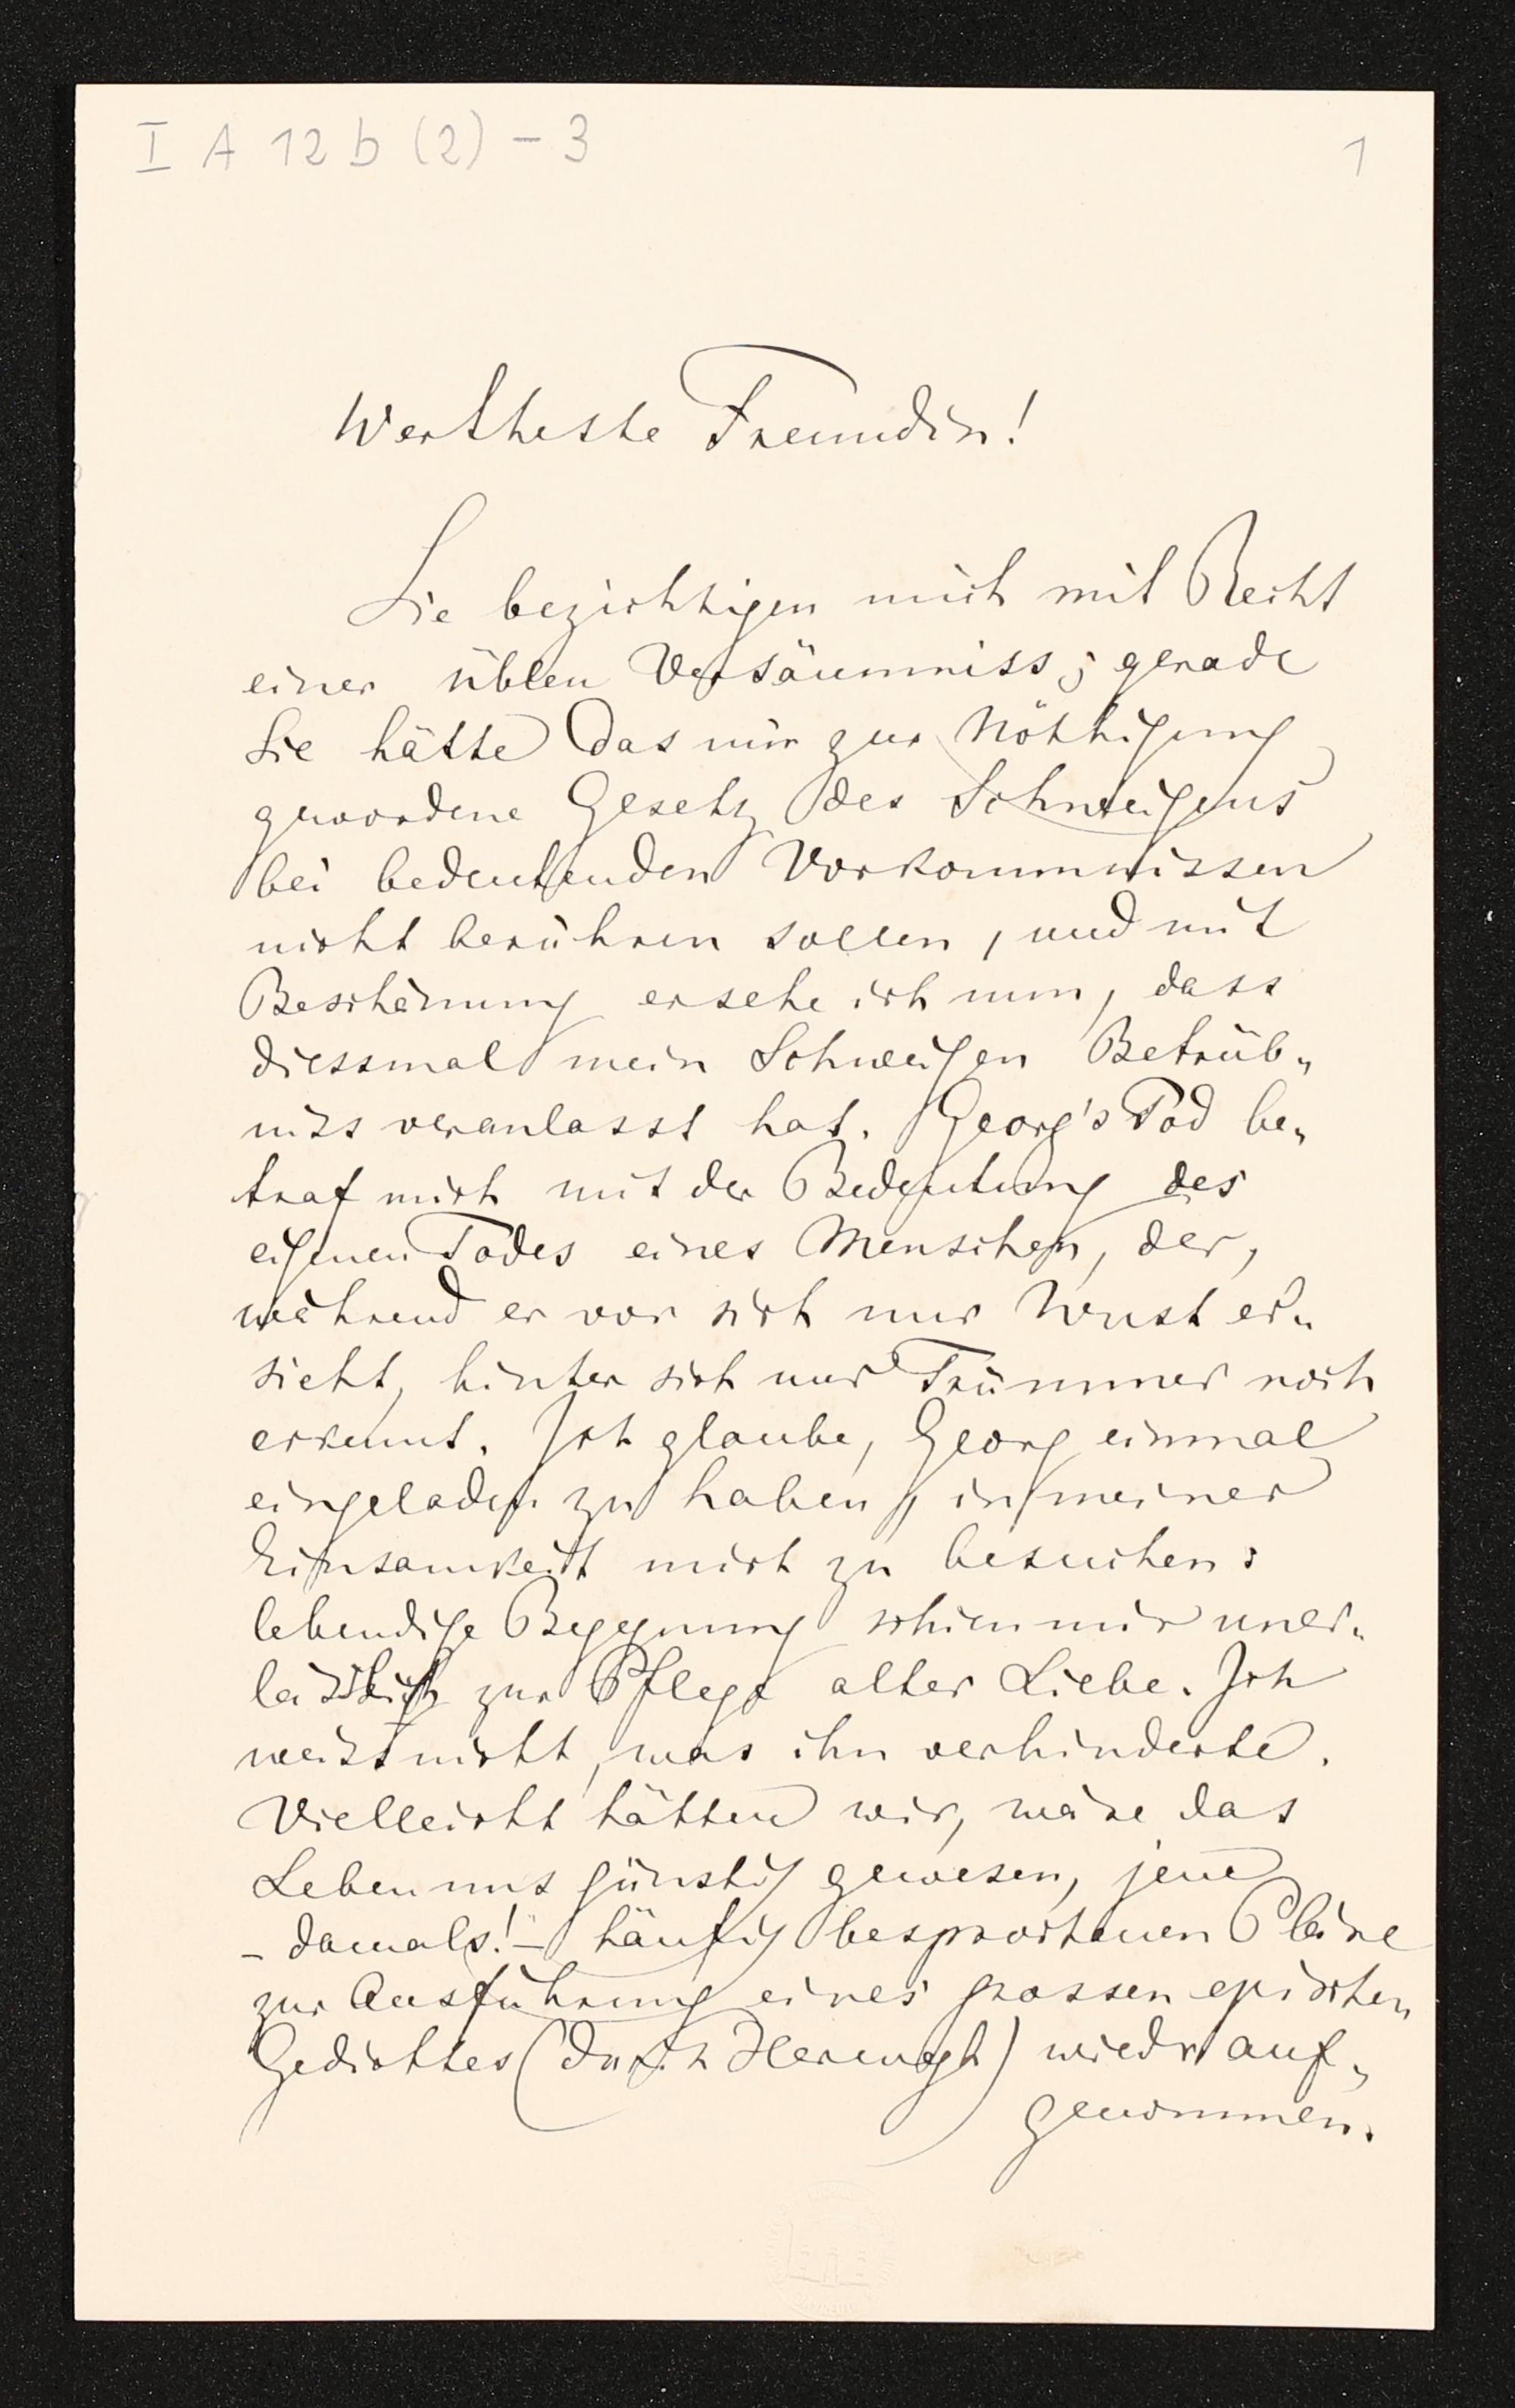 I A 12 b (2) - 3
1
Wertheste Freundin!
Sie bezichtigen mich mit Recht
einer üblen Versäumniss; gerade
Sie hätte das mir zur Nöthigung
gewordene Gesetz des Schweigens
bei bedeutenden Vorkommnissen
nicht berühren sollen, und mit
Beschämung ersehe ich nun, dass
diessmal mein Schweigen Betrüb-
niss veranlasst hat. Georg's Tod be-
traf mich mit der Bedeutung des
eigenen Todes eines Menschen, der,
während er vor sich nur Wust er-
sieht, hinter sich nur Trümmer noch
erkennt. Ich glaube, Georg einmal
eingeladen zu haben, in meiner
Einsamkeit mich zu besuchen:
lebendige Begegnung schien mir uner-
lässlich zur Pflege alter Liebe. Ich
weiss nicht, was ihn verhinderte.
Vielleicht hätten wir, wäre das
Leben uns günstig gewesen, jene
- damals! - häufig besprochenen Pläne
zur Ausführung eines grossen epischen
Gedichtes (durch Herwegh) wieder auf-
genommen.